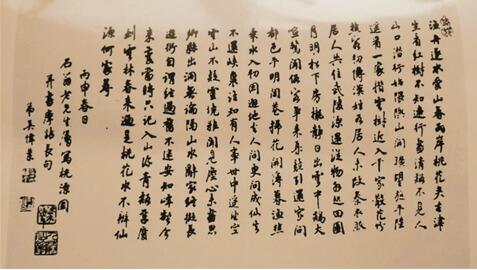 漁舟逐水愛山春兩岸桃花夾古津
坐看紅樹不知遠行盡清谿不見人
山口潛行始隈隩山開曠望旋平陸
遙看一處攢雲樹近入千家散花竹
樵客初傳漢姓名居人未改秦衣服
居人共住武陵源還從物外起田園
月明松下房櫳靜日出雲中雞犬
喧驚聞俗客爭來集競引還家問
都邑平明閭巷掃花開薄暮漁樵
乘水入初因避地去人間更問成仙去
不還峽裏誰知有人事世中遙望空
雲山不疑靈境難聞見塵心未盡思
鄉縣出洞無論隔山水辭家終擬長
遊衍自謂經過舊不迷安知峰壑今
來變當時只記入山深青谿幾度
到雲林春來遍是桃花水不辨仙
源何處尋
丙申春日
石翁老先生屬寫桃源圖
并書摩詰長句
弟吳偉業